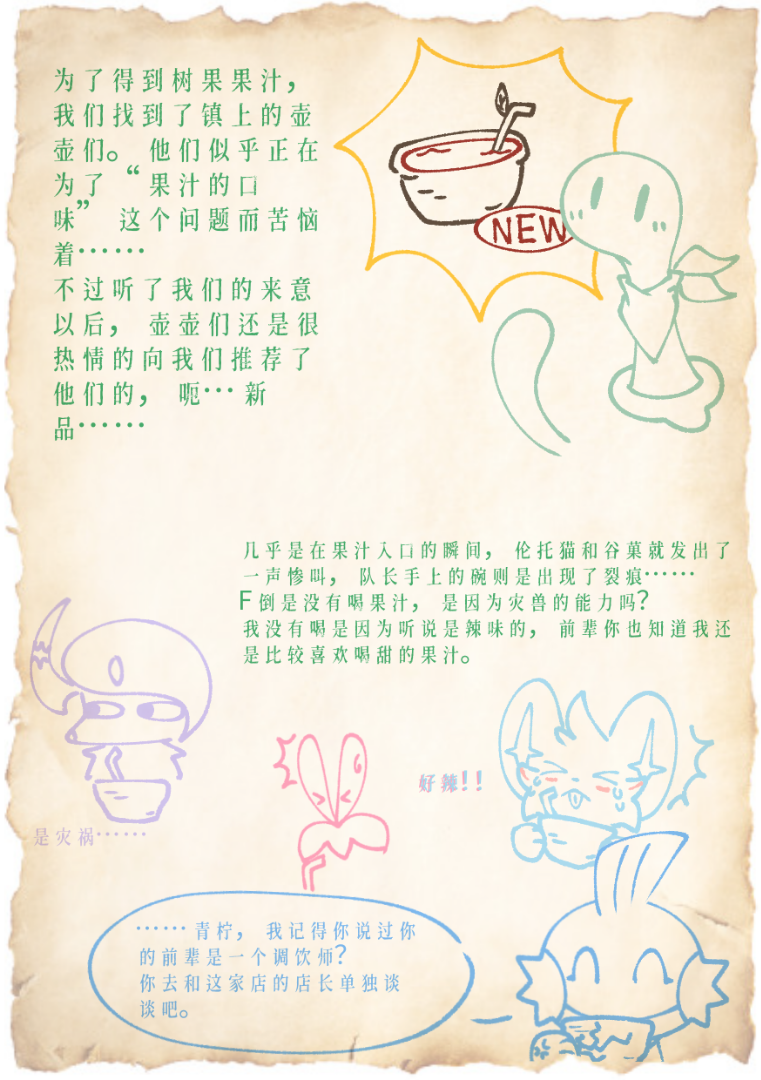 为了得到树果果汁，
我们找到了镇上的壶
壶们。 他们似乎正在
为了“果汁的口
味” 这个问题而苦恼
着……
不过听了我们的来意
以后， 壶壶们还是很
热情的向我们推荐了
他们的， 呃…新
品……
NEW
几乎是在果汁入口的瞬间， 伦托猫和谷菓就发出了
一声惨叫， 队长手上的碗则是出现了裂痕……
F倒是没有喝果汁， 是因为灾兽的能力吗?
我没有喝是因为听说是辣味的， 前辈你也知道我还
是比较喜欢喝甜的果汁。
好辣!!
是灾祸……
……青柠， 我记得你说过你
的前辈是一个调饮师?
你去和这家店的店长单独谈
谈吧。